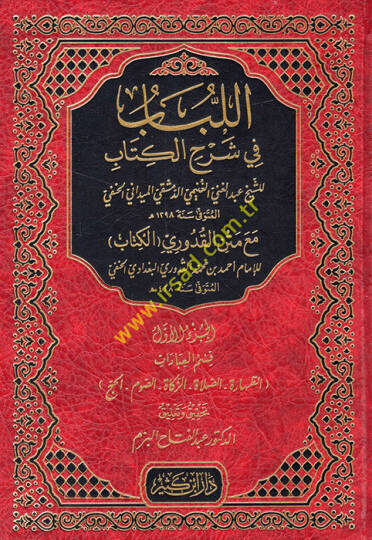 اللُّبَابُ
فِي شَرْحِ الكِتَابِ
للشيخ عبد الغني الغنيمي الدمشقي الميداني الحنفي
المتوفى سنة ١٢٩٨ هـ
مَعَ مَتْنِ القُدُورِي (الكِتَاب)
للإمام أحمد بن محمد القدوري البغدادي الحنفي
المتوفى سنة هـ
الجُزءُ الأوّل
قِسْم العِبَادَات
(الطّهَارة - الصَّلاة - الزّكاة - الصّوم - الحَجّ)
تحقيق وتعليق
الدكتور عبد الفتاح البزم
دَار ابن كَثير
www.irsad.com.tr